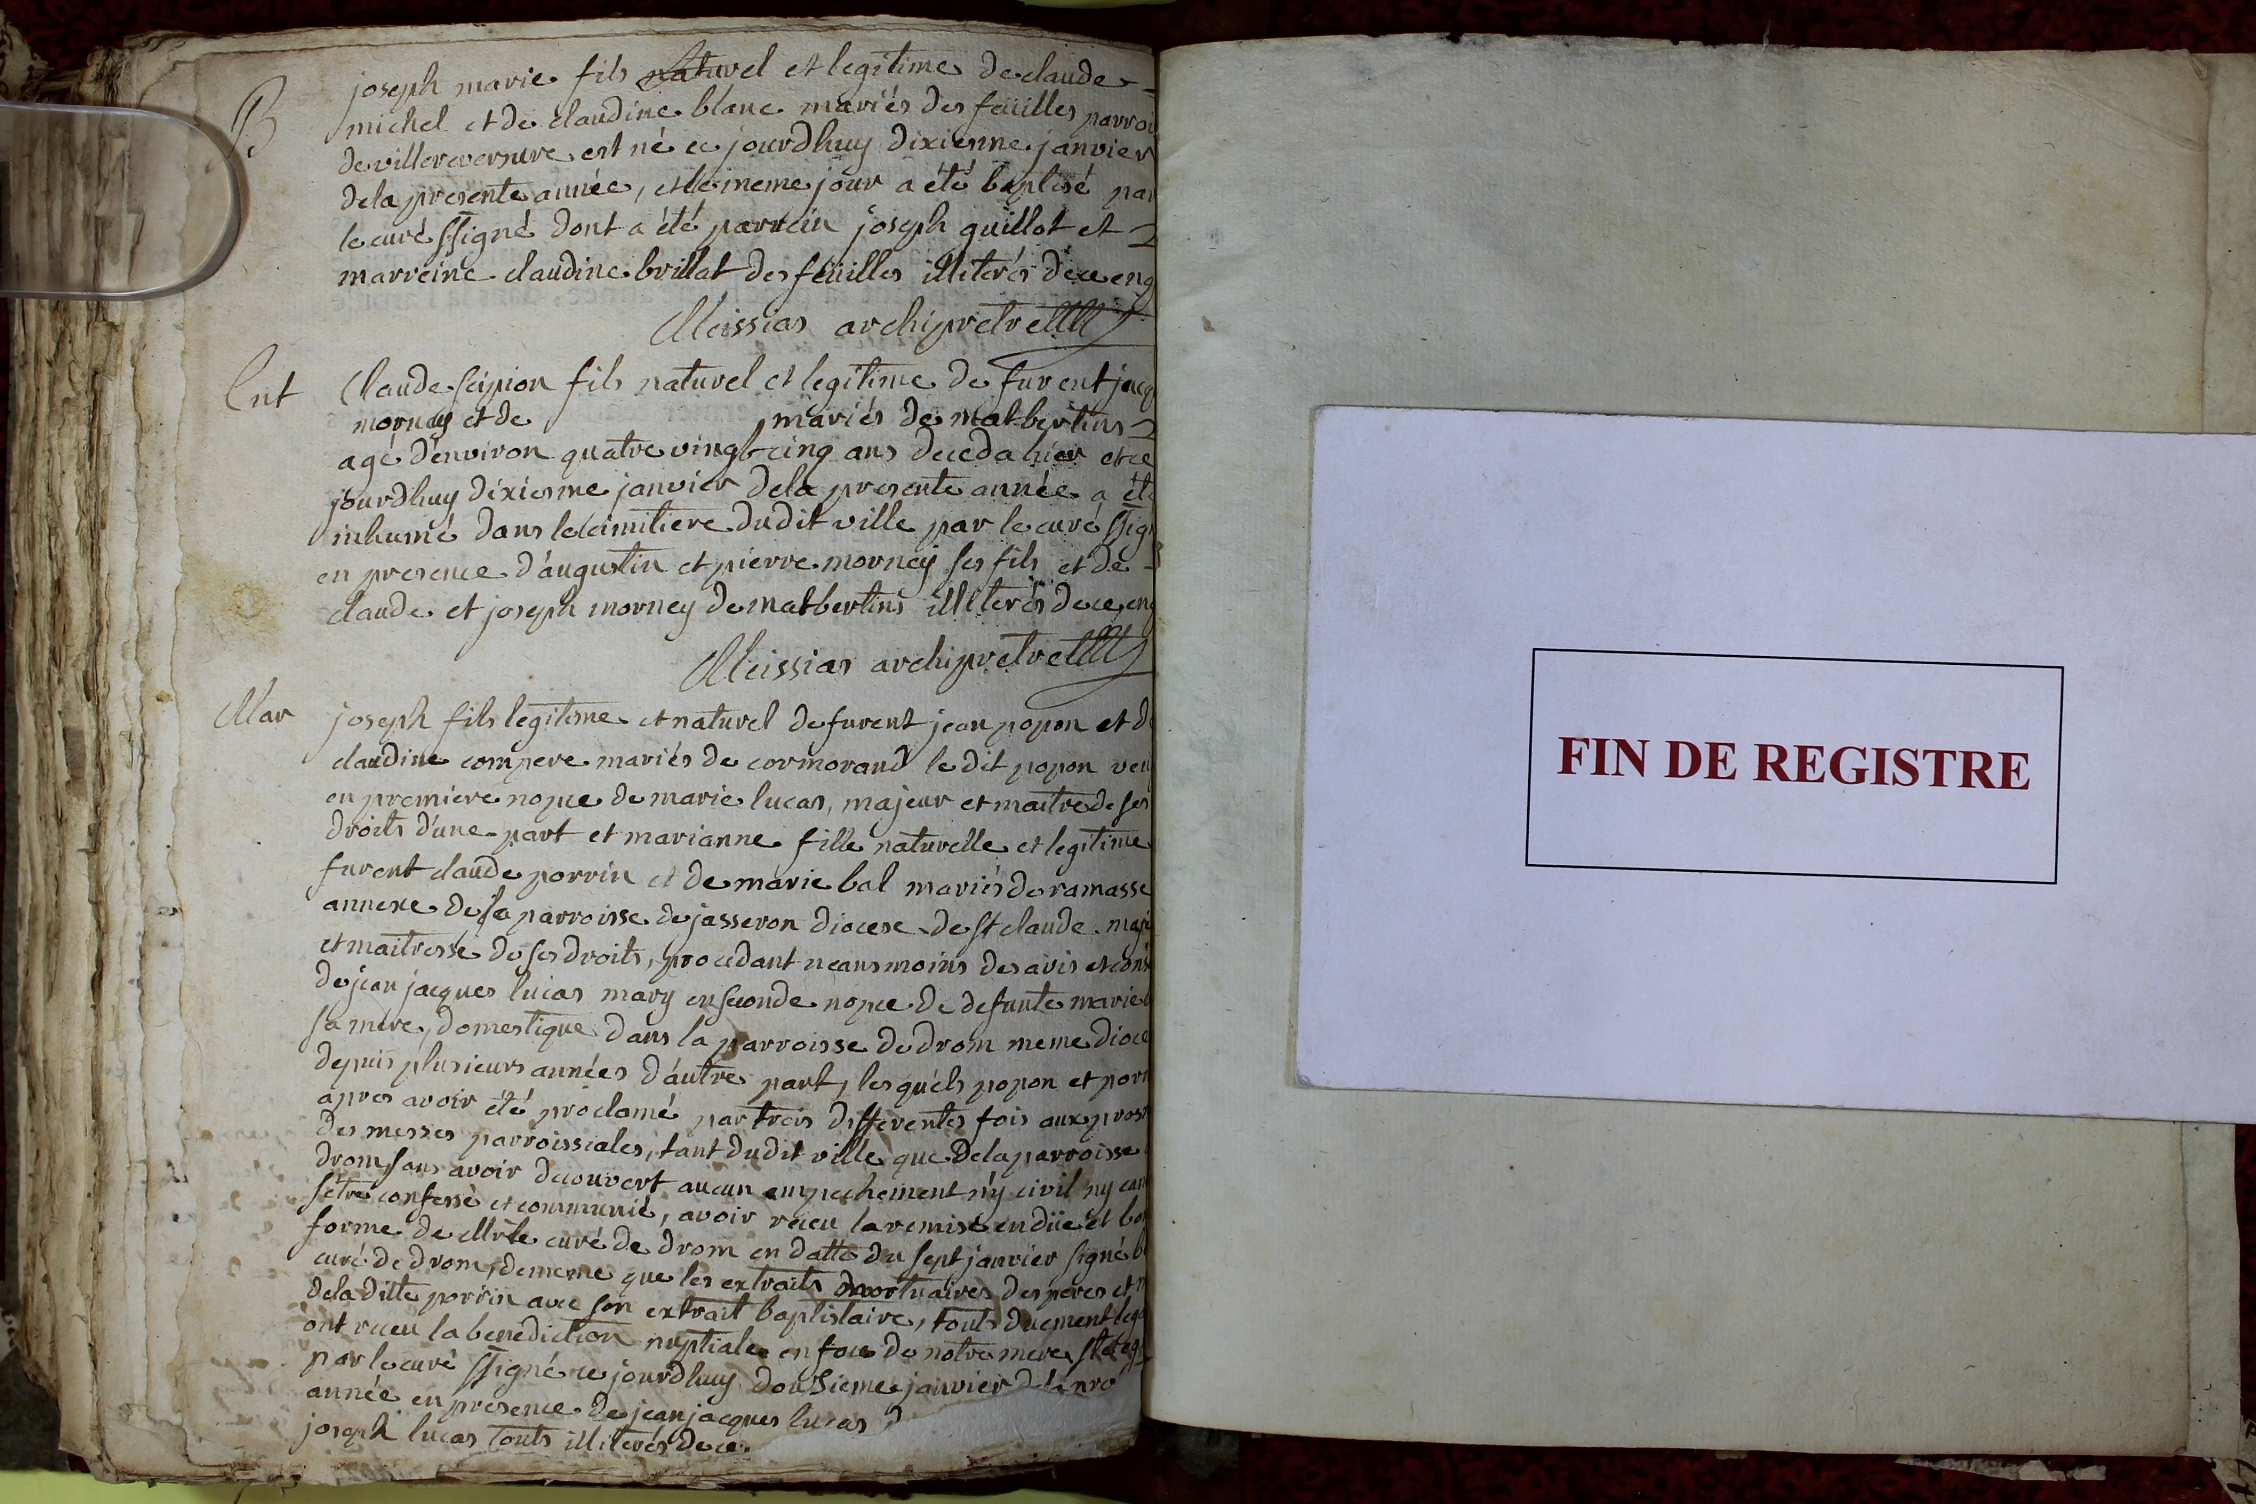 B
joseph marie fils naturel et legitime de claude
michel et de claudine blanc mariés des feüilles parroi
de villereversure est né ce jourdhuy dixienne janvier
de la presente année, et le meme jour a été baptisé par
le curé ssigné dont a été parrein joseph guillot et
marreine claudine brillat des feüilles illiterés de ce enq
Meissias archipretre
Ent
Claude scipion fils naturel et legitime de furent jacq
mornay et de mariés de matbertins
agé d'environ quatre vingt cinq ans deceda hier et ce
jourdhuy dixiesme janvier de la presente année a été
inhumé dans le cimitiere dudit ville par le curé ssign
en presence d'augustin et pierre morney ses fils et de
claude et joseph morney de matbertins illiterés de ce enq
Meissias archipretre
Mar
joseph fils legitime et naturel de furent jean popon et de
claudine compere mariés de cormorand le dit popon veu
en premiere nopce de marie lucas, majeur et maitre de ses
droits d'une part et marianne fille naturelle et legitime
furent claude porrin et de marie bal mariés de ramasse
annexe de la parroisse de jasseron diocese de st claude maj
et maitresse de ses droits, procedant neansmoins des avis et cons
de jean jacques lucas mary en seconde nopce de defunte marie
sa mere, domestique dans la parroisse de drom meme dioce
depuis plusieurs années d'autre part, lesquels popon et porr
apres avoir été proclamé par trois differentes fois aux pros
des messes parroissiales, tant dudit ville que de la parroisse
drom, sans avoir decouvert aucun empechement n'y civil ny can
s'etre confessé et communié, avoir receu la remise en düe et bo
forme de Mr le curé de drom en datte du sept janvier signé b
curé de drom, de meme que les extraits mortuaires des peres et m
de la ditte porrin avec son extrait baptistaire, touts duement leg
ont receu la benediction nuptiale en face de notre mere ste eg
par le curé ssigné ce jourdhuy douzieme janvier de la pre
année en presence de jean jacques lucas
joseph lucas touts illiterés de ce
FIN DE REGISTRE